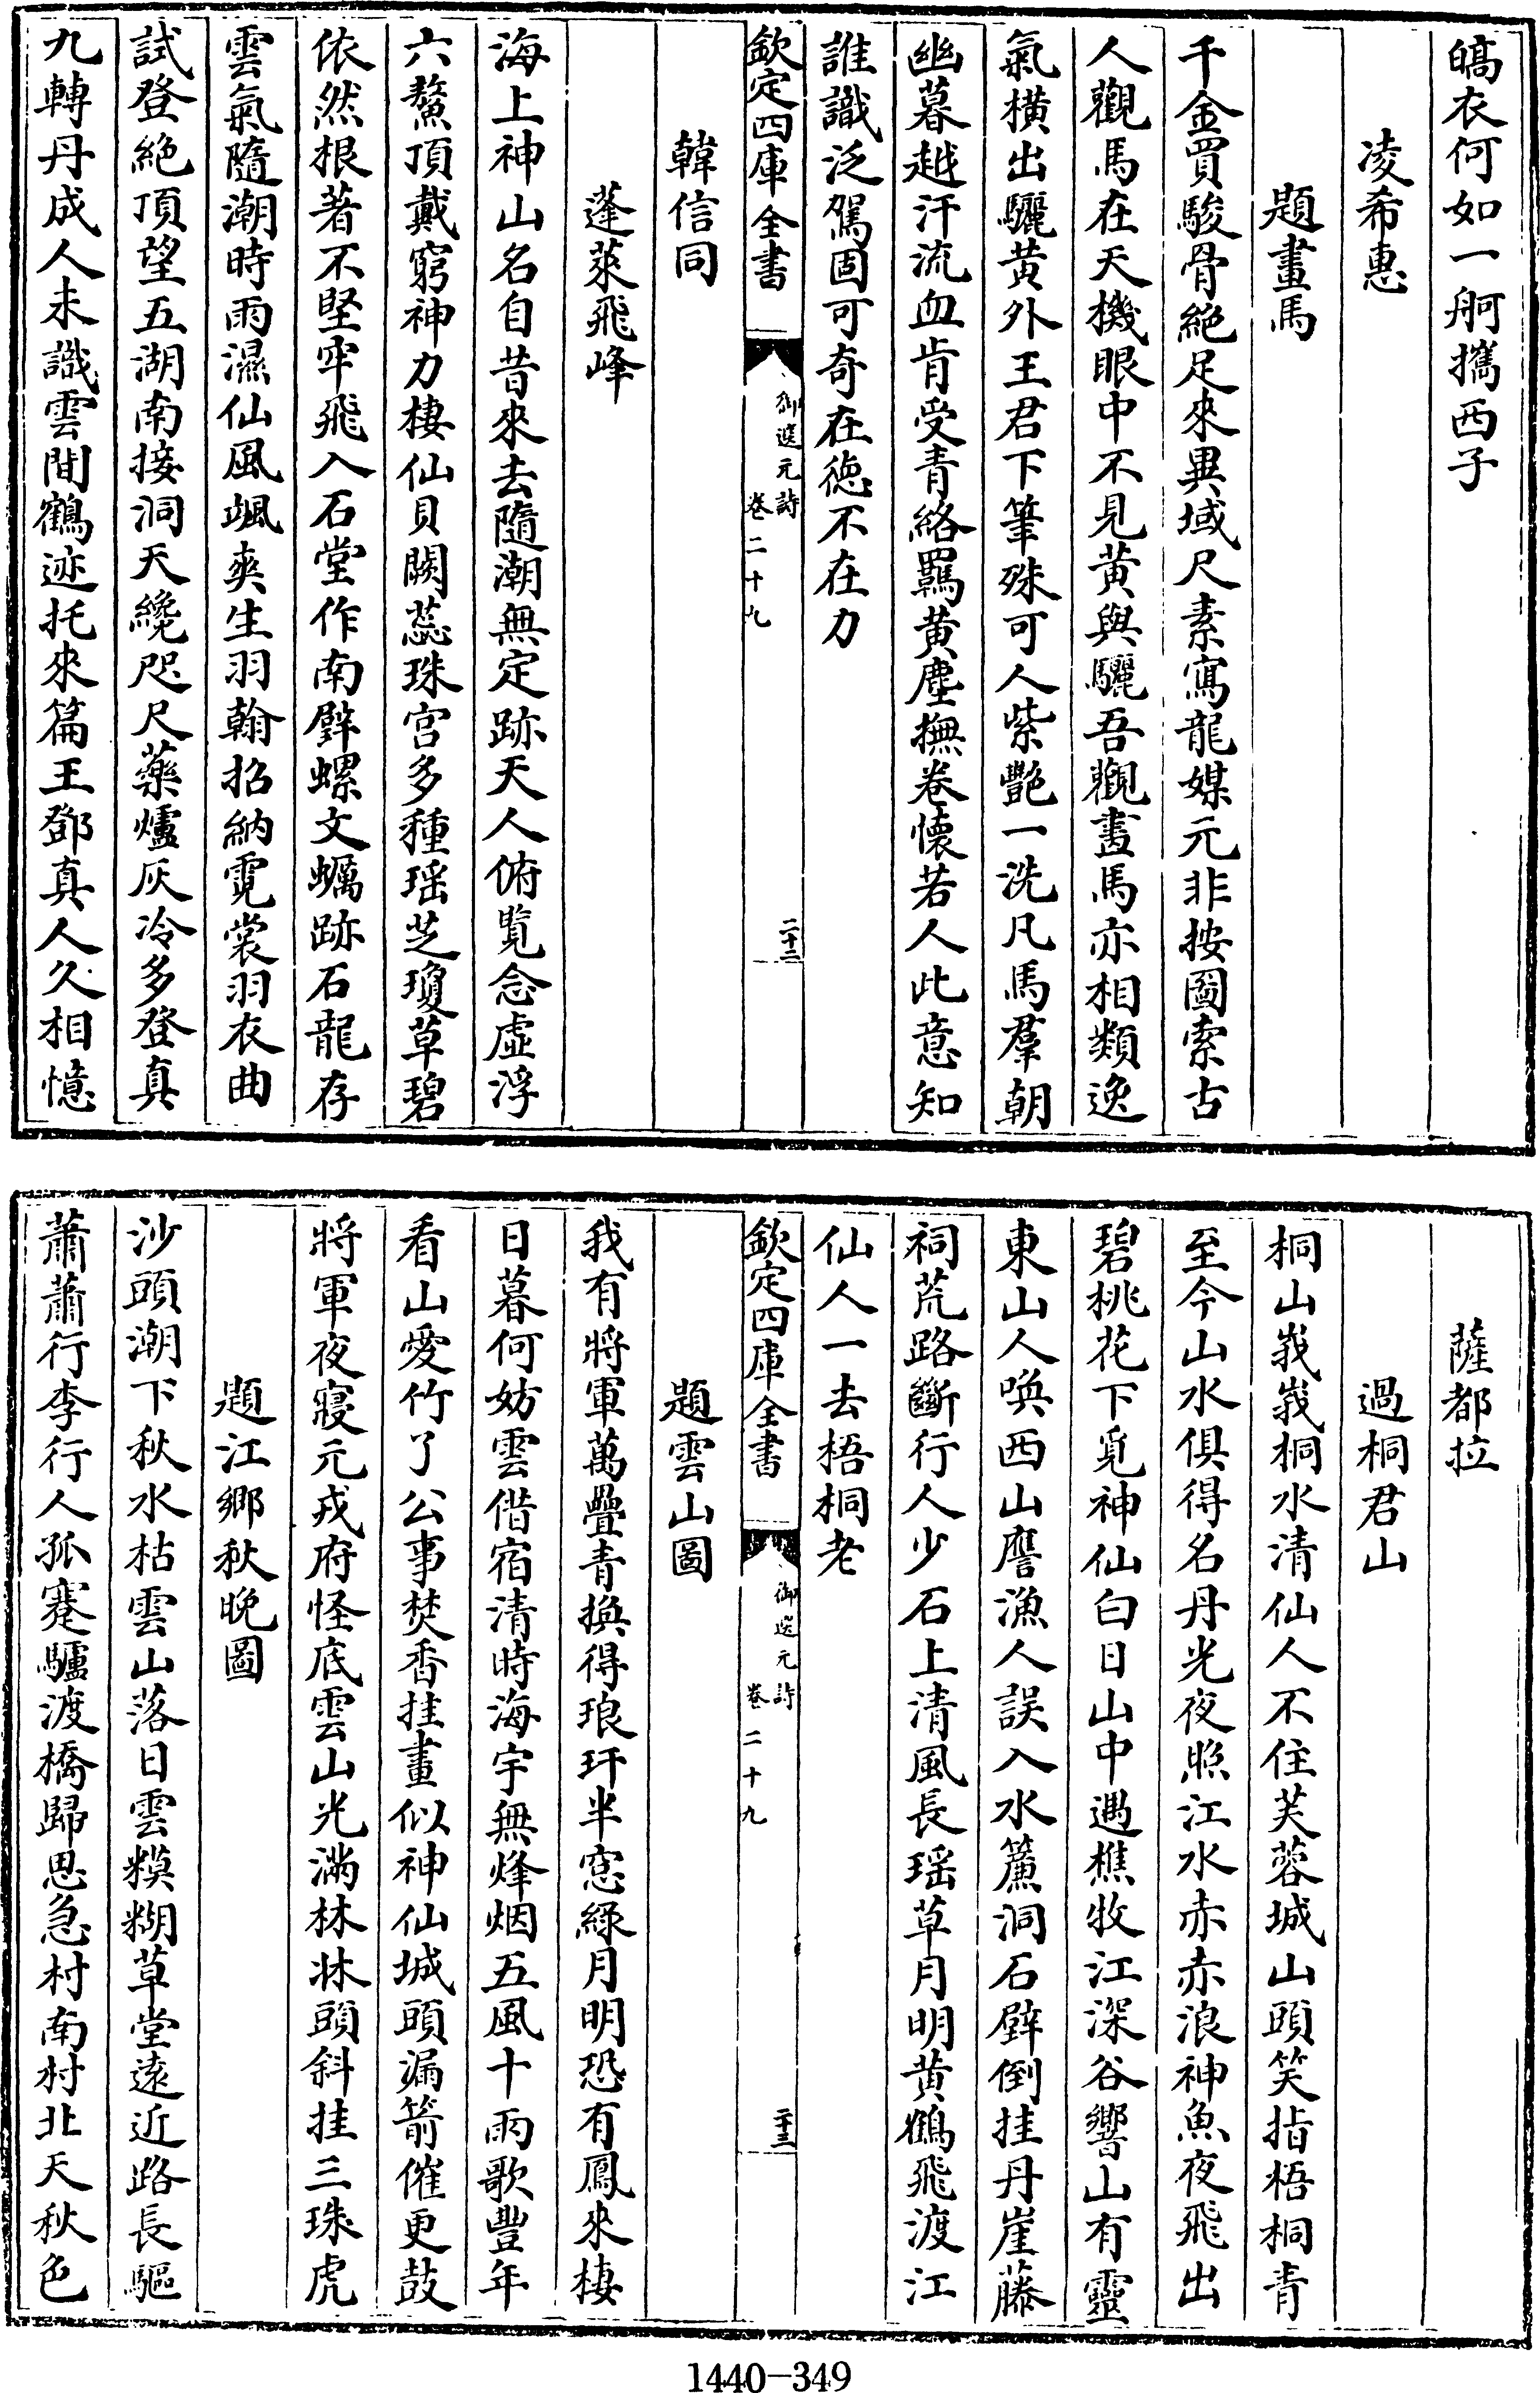 皜衣何如一舸攜西子
凌希惠
題畫馬
千金買駿骨絶足來異域尺素寫龍媒元非按圖索古
人觀馬在天機眼中不見黄與驪吾觀畫馬亦相類逸
氣横出驪黄外王君下筆殊可人紫艷一洗凡馬羣朝
幽暮越汗流血肯受青絡羈黄塵撫卷懷若人此意知
誰識泛駕固可奇在徳不在力
欽定四庫全書
御選元詩
卷二十九
二十二
韓信同
蓬萊飛峰
海上神山名自昔來去隨潮無定跡天人俯覧念虚浮
六鰲頂戴窮神力棲仙貝闕蕊珠宫多種瑶芝瓊草碧
依然根著不堅牢飛入石堂作南壁螺文蠣跡石龍存
雲氣隨潮時雨濕仙風颯爽生羽翰招納霓裳羽衣曲
試登絶頂望五湖南接洞天纔咫尺藥爐灰冷多登真
九轉丹成人未識雲間鶴迹托來篇王鄧真人久相憶
薩都拉
過桐君山
桐山峩峩桐水清仙人不住芙蓉城山頭笑指梧桐青
至今山水俱得名丹光夜照江水赤赤浪神魚夜飛出
碧桃花下覓神仙白日山中遇樵牧江深谷響山有靈
東山人喚西山譍漁人誤入水簾洞石壁倒挂丹崖藤
祠荒路斷行人少石上清風長瑶草月明黄鶴飛渡江
仙人一去梧桐老
欽定四庫全書
御選元詩
卷二十九
二十三
題雲山圖
我有將軍萬疊青換得琅玕半窓緑月明恐有鳳來棲
日暮何妨雲借宿清時海宇無烽烟五風十雨歌豐年
看山愛竹了公事焚香挂畫似神仙城頭漏箭催更鼓
將軍夜寢元戎府怪底雲山光滿林牀頭斜挂三珠虎
題江鄉秋晚圖
沙頭潮下秋水枯雲山落日雲糢糊草堂逺近路長驅
蕭蕭行李行人孤蹇驢渡橋歸思急村南村北天秋色
1440-349